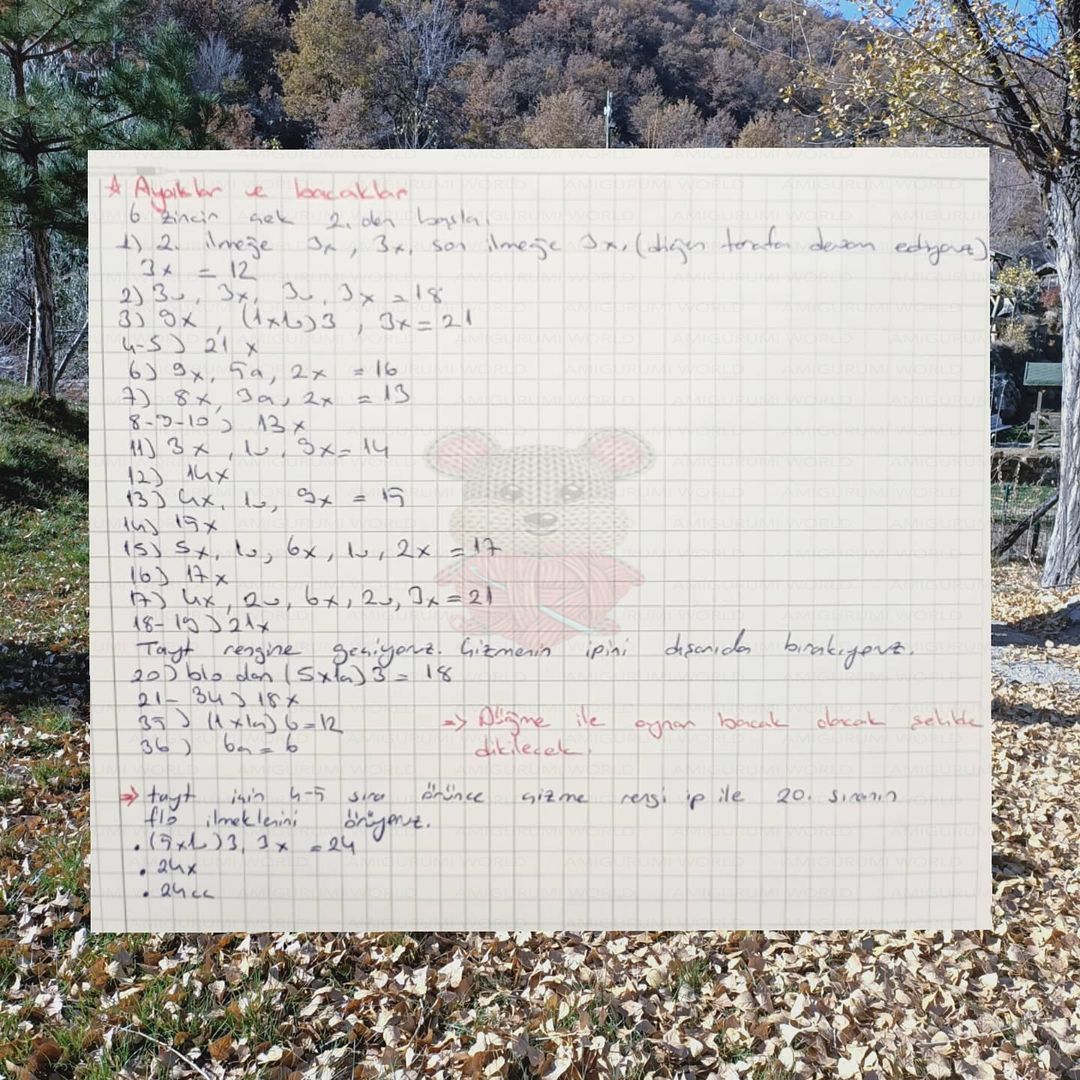 ☆ Ayaklar ve bacaklar
6 zincir çek 2. den başla.
1) 2. ilmeğe 3x, 3x, son ilmeğe 3x, (diğer taraftan devam ediyoruz)
3x = 12
2) 3v, 3x, 3v, 3x = 18
3) 9x, (1x1v)3, 3x = 21
4-5) 21x
6) 9x, 5a, 2x = 16
7) 8x, 3a, 2x = 13
8-9-10) 13x
11) 3x, 1v, 9x = 14
12) 14x
13) 4x, 1v, 9x = 15
14) 15x
15) 5x, 1v, 6x, 1v, 2x = 17
16) 17x
17) 4x, 2v, 6x, 2v, 3x = 21
18-19) 21x
Tayt rengine geçiyoruz. Çizmenin ipini dışarıda bırakıyoruz.
20) blo dan (5x1a)3 = 18
21-34) 18x
35) (1x1a)6 = 12
36) 6a = 6
=> Düğme ile oynar bacak olacak şekilde
dikilecek.
=> tayt için 4-5 sıra örünce çizme rengi ip ile 20. sıranın
flo ilmeklerini örüyoruz.
. (5x1v)3, 3x = 24
. 24x
. 24cc
AMIGURUMI WORLD